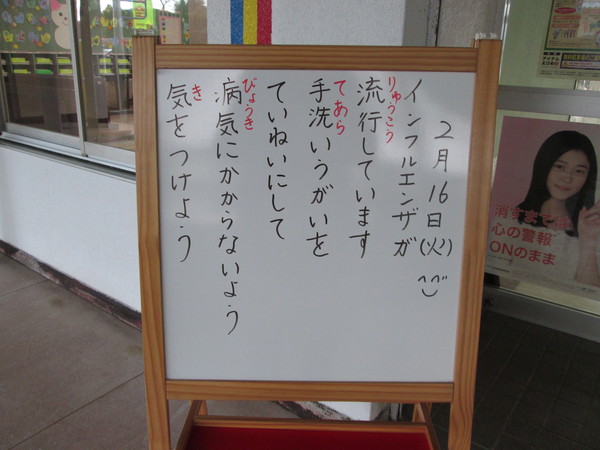 2月16日(火)^^
インフルエンザが
流行しています
りゅうこう
手洗いうがいを
てあら
ていねいにして
病気にかからないよう
びょうき
気をつけよう
き
消すまでは
心の警報
ONのまま